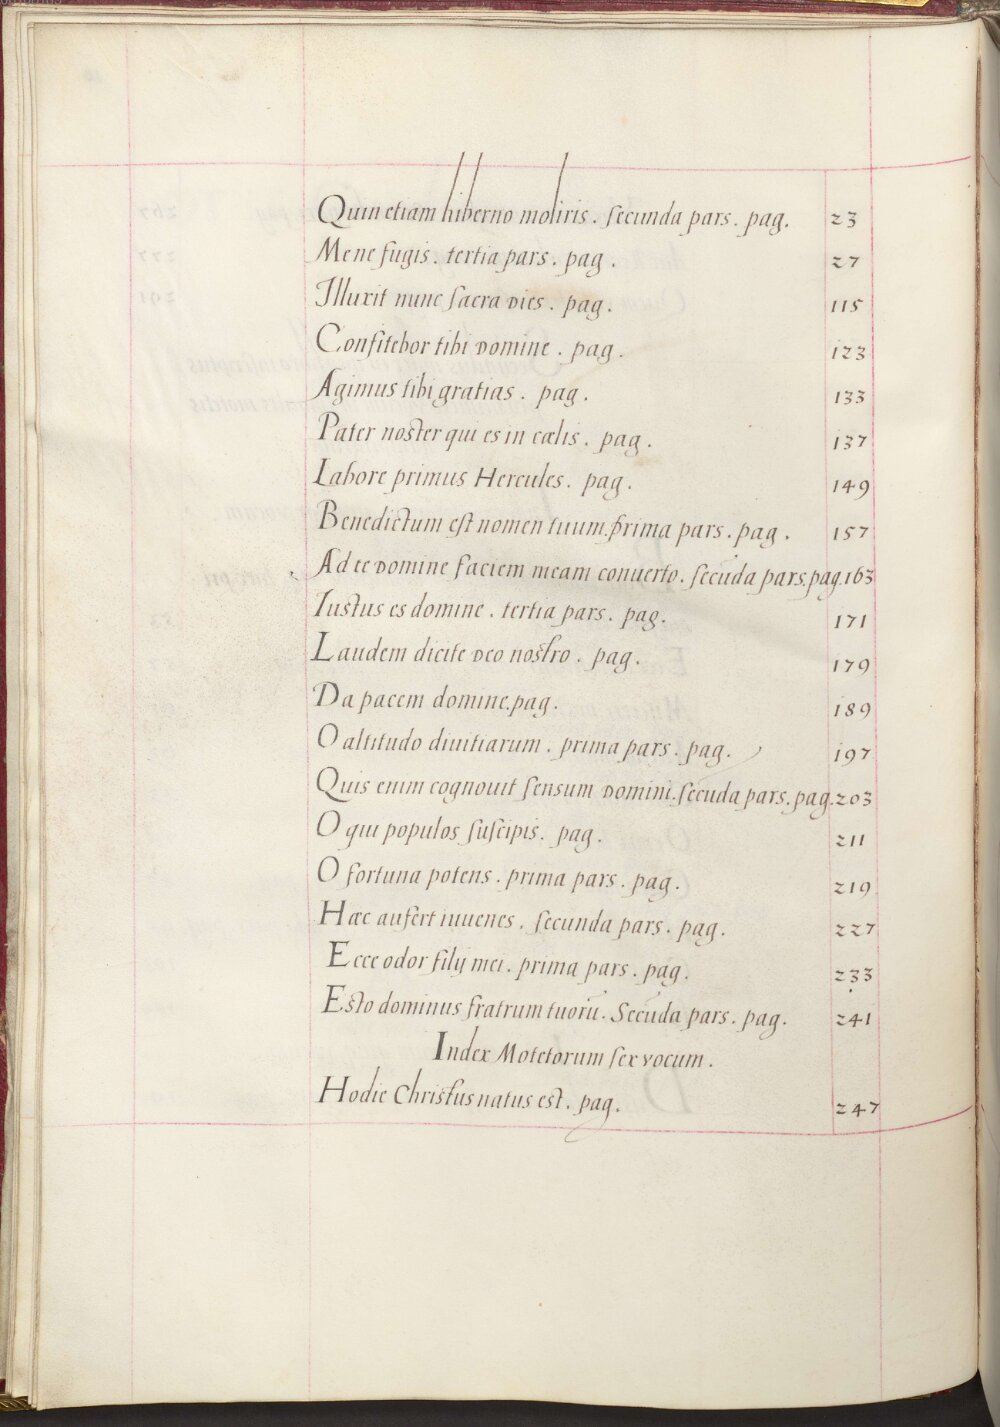 Quin etiam hiberno moliris. secunda pars. pag. 23
Mene fugis. tertia pars. pag. 27
Illuxit nunc sacra dies. pag. 115
Confitebor tibi domine. pag. 123
Agimus tibi gratias. pag. 133
Pater noster qui es in cælis. pag. 137
Labore primus Hercules. pag. 149
Benedictum est nomen tuum. prima pars. pag. 157
Ad te domine faciem meam conuerto. secūda pars. pag. 163
Iustus es domine. tertia pars. pag. 171
Laudem dicite deo nostro. pag. 179
Da pacem domine. pag. 189
O altitudo diuitiarum. prima pars. pag. 197
Quis enim cognouit sensum domini. secūda pars. pag. 203
O qui populos suscipis. pag. 211
O fortuna potens. prima pars. pag. 219
Hæc aufert iuuenes. secunda pars. pag. 227
Ecce odor filij mei. prima pars. pag. 233
Esto dominus fratrum tuorū. Secūda pars. pag. 241
Index Motetorum sex vocum.
Hodie Christus natus est. pag. 247